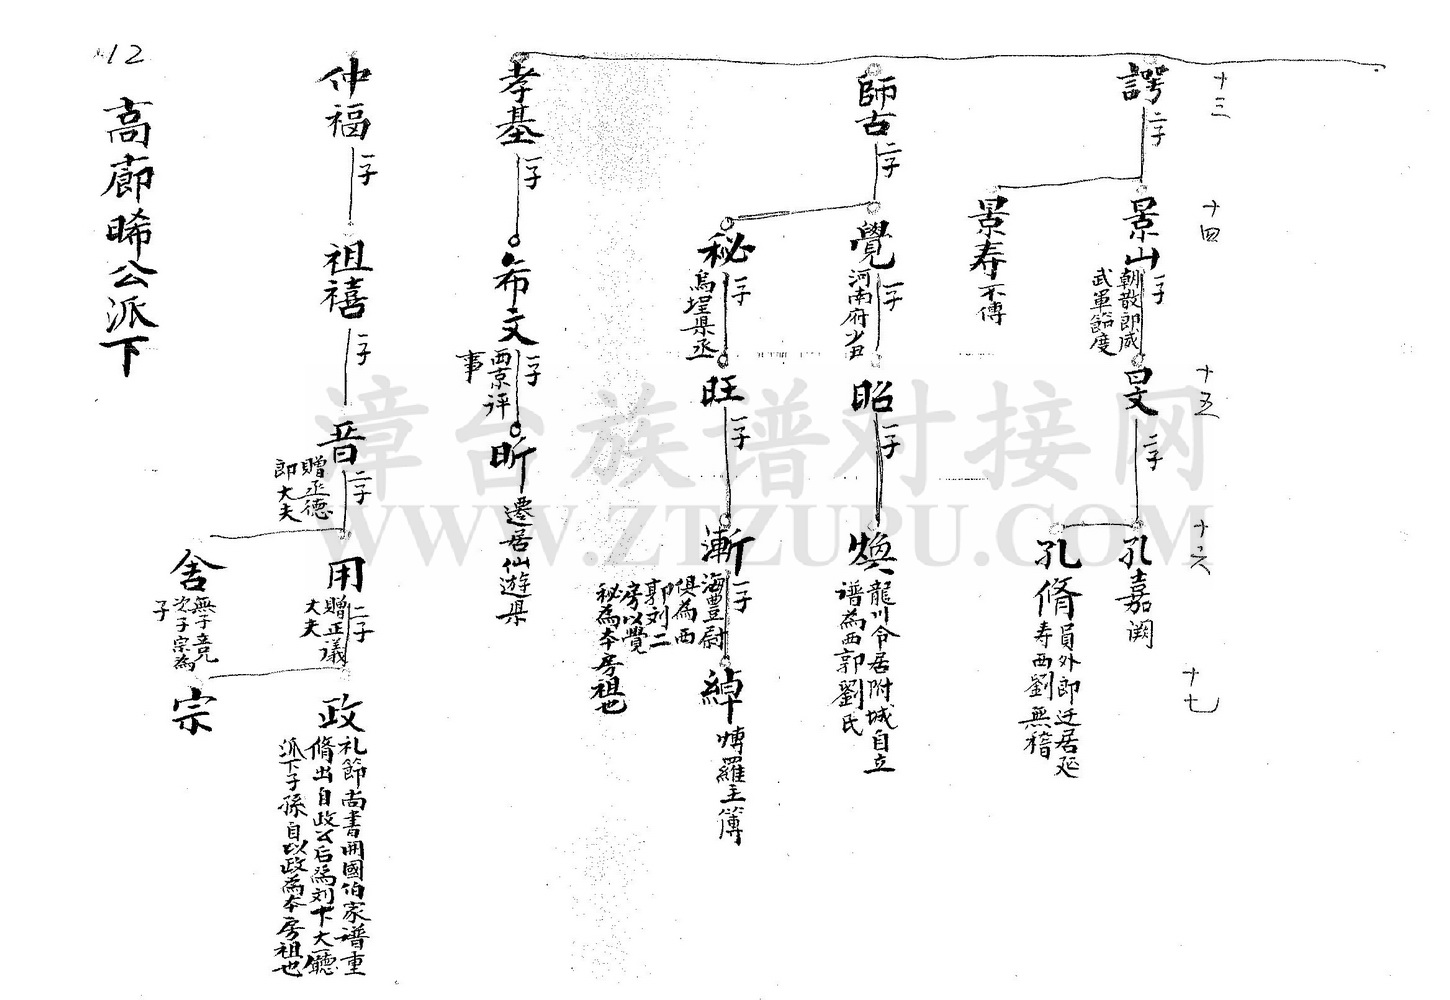 十三
十四
十五
十六
十七
諤
二子
景山
一子
朝散郎威
武軍節度
旻
二子
孔嘉
闕
孔脩
員外郎迁居延
寿西劉無稽
景寿
不傳
師古
二子
覺
一子
河南府
昭
一子
煥
龍川令居附城自立
譜為西郭劉氏
秘
一子
烏埕県丞
旺
一子
漸
一子
海豊尉
俱為西
郭刘二
房以覺
秘為本房祖也
綽
博羅主簿
孝基
一子
希文
一子
西京評
事
昕
遷居仙遊県
仲福
一子
祖禧
一子
晋
二子
贈丞德
郎大夫
用
二子
贈正議
大夫
政
礼節尚書開國伯家谱重
脩出自政公后為刘下大廳
派下子孫自以政為本房祖也
舍
無子立兄
次子宗為
子
宗
12
高廍晞公派下
漳台族谱对接网
WWW.ZTZUPU.COM